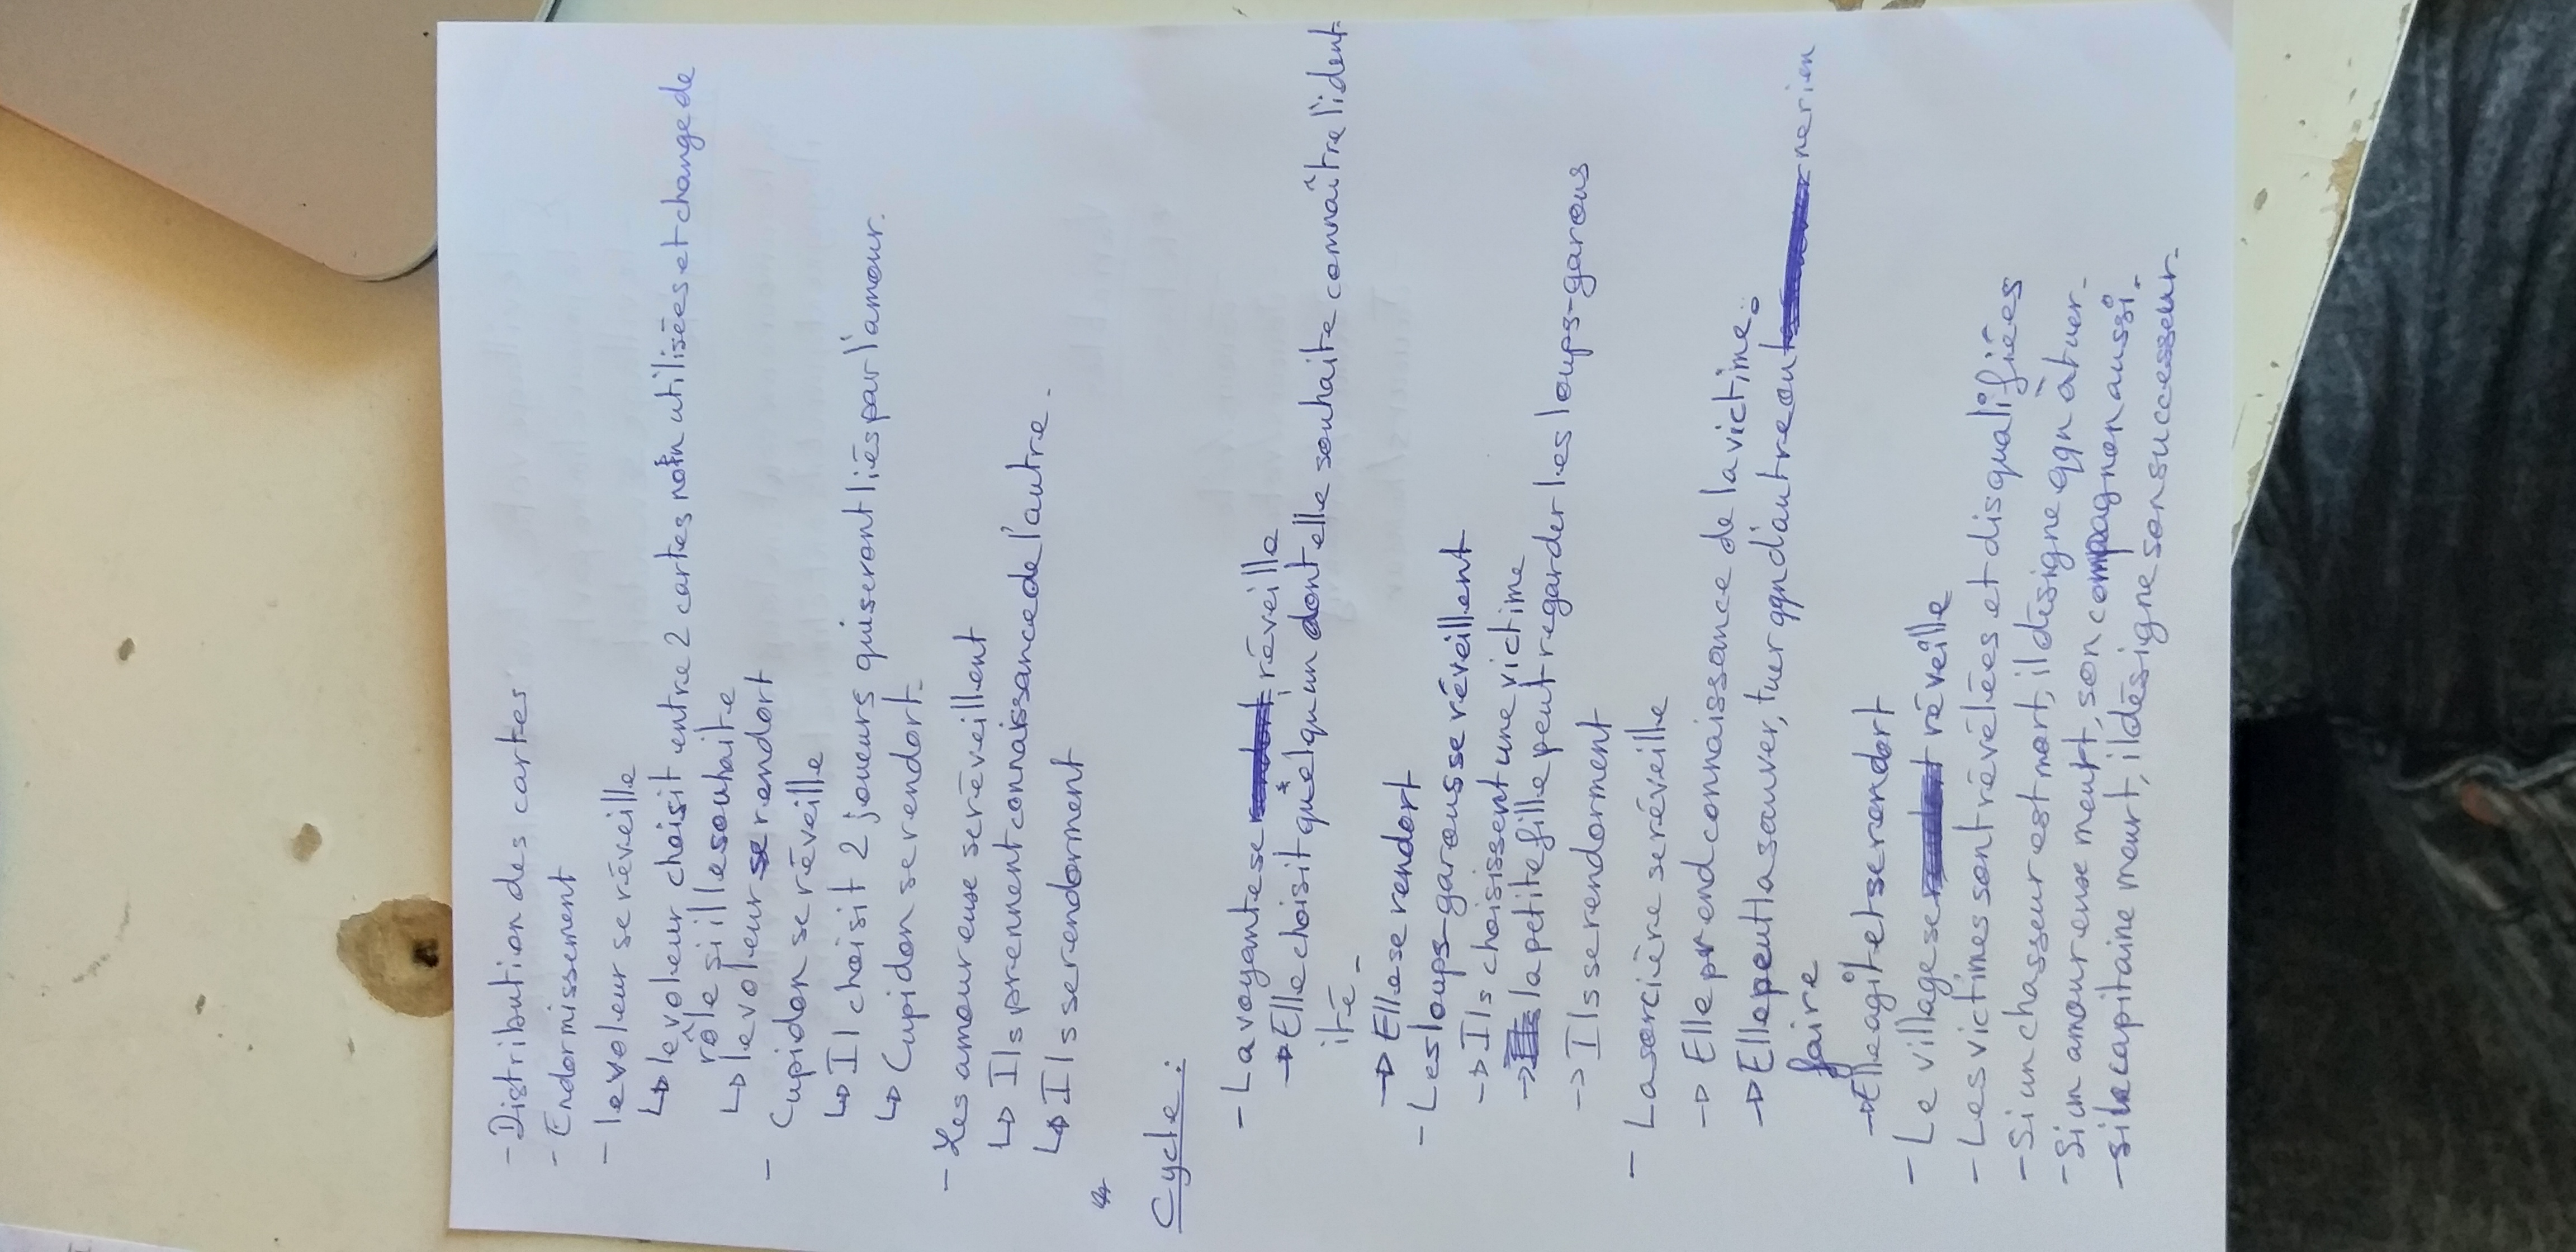 - Distribution des cartes
- Endormissement
- le voleur se réveille
↳ le voleur choisit entre 2 cartes non utilisées et change de
rôle si il le souhaite
↳ le voleur se rendort
- Cupidon se réveille
↳ Il choisit 2 joueurs qui seront liés par l'amour.
↳ Cupidon se rendort.
- Les amoureuse se réveillent
↳ Ils prennent connaissance de l'autre.
↳ Ils se rendorment
Cycle :
- La voyante se réveille
→ Elle choisit quelqu'un dont elle souhaite connaître l'ident-
ité.
→ Elle se rendort
- Les loups-garous se réveillent
→ Ils choisissent une victime
→ la petite fille peut regarder les loups-garous
→ Ils se rendorment
- La sorcière se réveille
→ Elle prend connaissance de la victime.
→ Elle peut la sauver, tuer qqn d'autre ou ne rien
faire
→ Elle agit et se rendort
- Le village se réveille
- Les victimes sont révélées et disqualifiées
- Si un chasseur est mort, il désigne qqn à tuer.
- Si un amoureuse meurt, son compagnon aussi.
- si le capitaine meurt, il désigne son successeur.